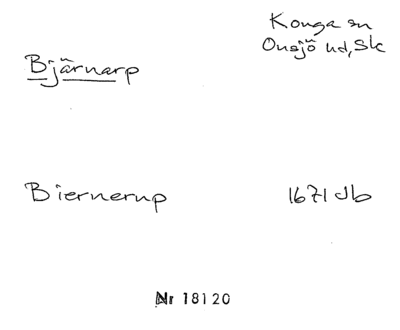 Konga sn
Onsjö hd, Sk
Bjärnarp
Biernerup 1671 Jb
Nr 18120